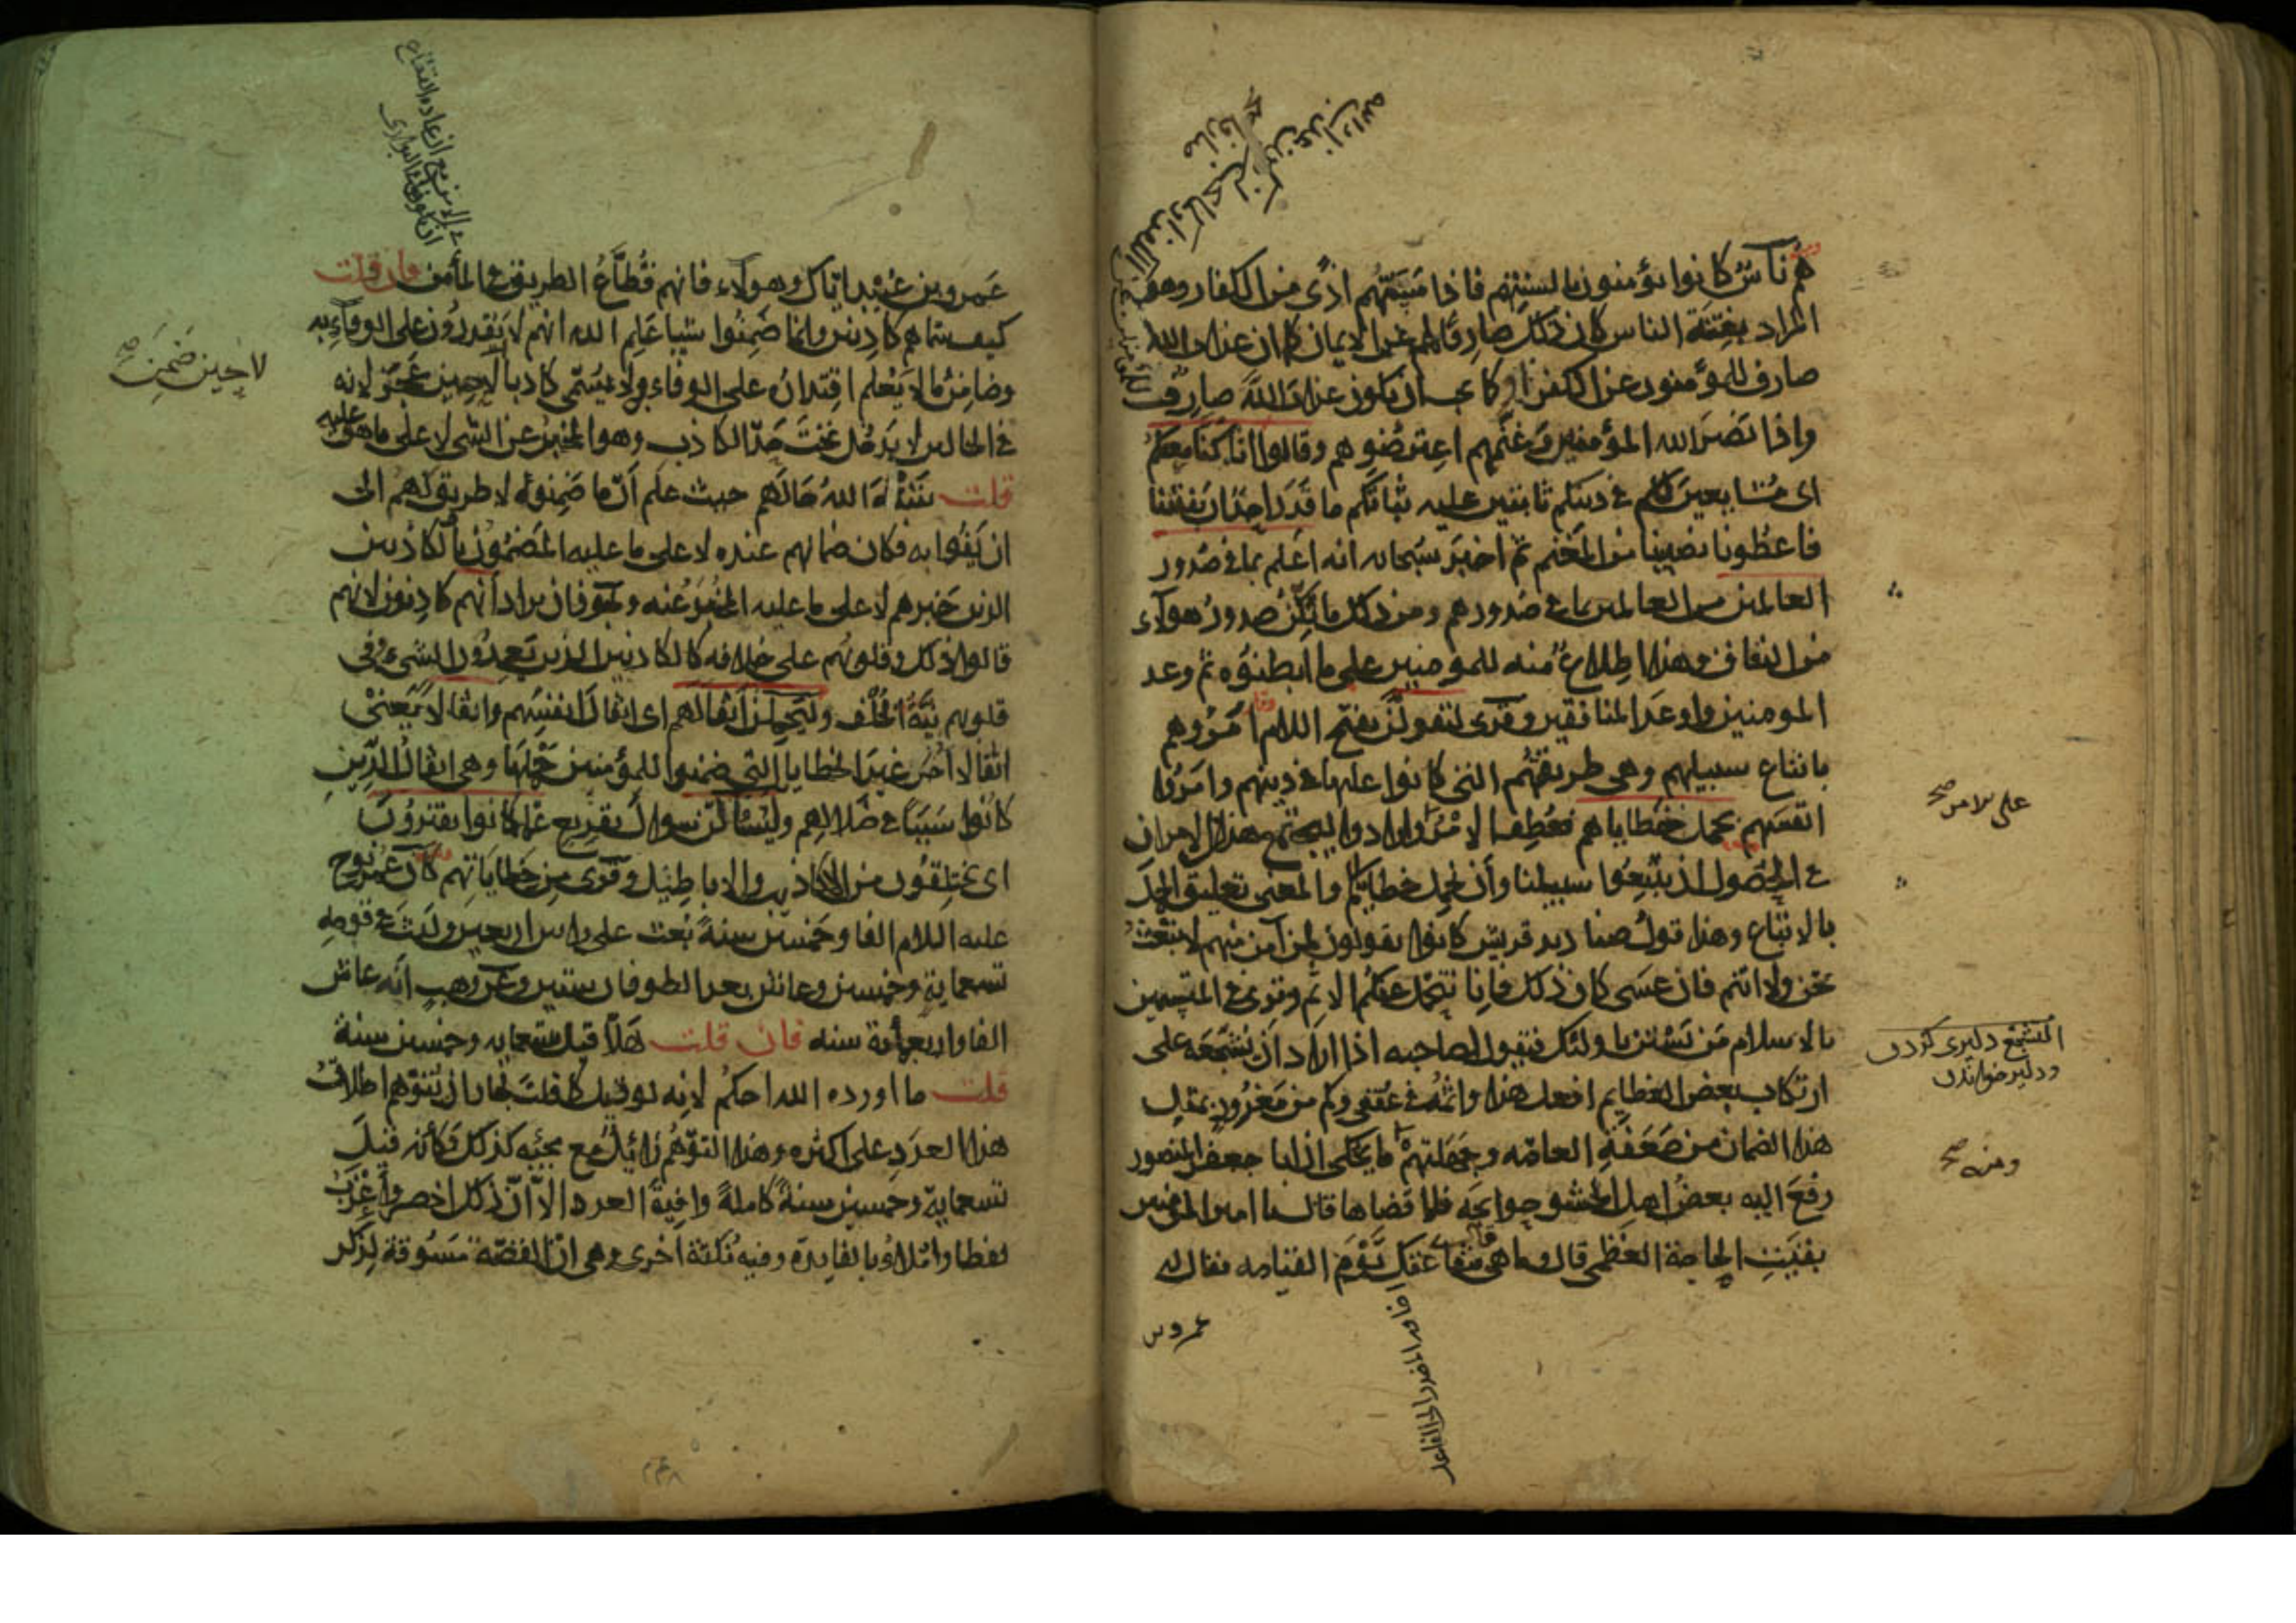 هم ناس كانوا يؤمنون بالسنتهم فاذا مسّهم اذى من الكفار وهو
المراد بفتنة الناس كان ذلك صارفا لهم عن الايمان كما ان عذاب الله
صارف للمؤمنون عن الكفر او كما يجب ان يكون عذاب الله صارف
واذا نصر الله المؤمنين وغنمهم اعترضوهم وقالوا انا كنا معكم
اى مشايعين لكم فى دينكم ثابتين عليه ثباتكم ما قدر احد ان يفتننا
فاعطونا نصيبنا من المغنم ثم اخبر سبحانه انه اعلم بما فى صدور
العالمين من العالمين بما فى صدورهم ومن ذلك ما تكنّ صدور هولاء
من النفاق وهذا اطلاع منه للمومنين على ما ابطنوه ثم وعد
المومنين واوعد المنافقين وقرى ليقولن بفتح اللام امروهم
باتباع سبيلهم وهى طريقتهم التى كانوا عليها فى دينهم وامروا
انفسهم بحمل خطاياهم فعطف الامر وارادوا ليجتمع هذان الامران
فى الحصول ان يتبعوا سبيلنا وان نحمل خطاياكم والمعنى تعليق الحمل
بالاتباع وهذا قول صناديد قريش كانوا يقولون لمن آمن منهم لا نبعث
نحن ولا انتم فان عسى كان ذلك فانا نتحمل عنكم الاثم وترى فى المتسمين
بالاسلام من يستن باولئك فيقول لصاحبه اذا اراد ان يشجعه على
ارتكاب بعض العظايم افعل هذا واثمه فى عنقى وكم من مغرور بمثل
هذا الضمان من ضعفة العامه وجهلتهم ما يحكى ان ابا جعفر المنصور
رفع اليه بعض اهل الحشو حوايجه فلما قضاها قال يا امير المومنين
بقيت الحاجة العظمى قال وما هى قال شفاعتك يوم القيامه فقال له
عمرو بن
على سلامن صح
التشجع دليرى كردن
ودلير خواندن
ومنه صح
عمرو بن عبيد اياك وهولاء فانهم قطّاع الطريق فى المأمن فان قلت
كيف سماهم كاذبين وانما ضمنوا شيا علم الله انهم لا يقدرون على الوفاء به
وضامن ما لا يعلم اقتداره على الوفاء به لا يسمى كاذبا لا حين عجز لانه
فى الحالين لا يدخل تحت حدّ الكاذب وهو المخبر عن الشى لا على ما هو عليه
قلت شبّه الله حالهم حيث علم ان ما ضمنوه لا طريق لهم الى
ان يفوا به فكان ضمانهم عنده لا على ما عليه المضمون بالكاذبين
الذين خبرهم لا على ما عليه المخبر عنه ويجوز ان يراد انهم كاذبون لانهم
قالوا ذلك وقلوبهم على خلافه كالكاذبين الذين يعدون الشىء وفى
قلوبهم نيّة الخلف وليحملن اثقالهم اى اثقال انفسهم واثقالا يعنى
اثقالا اخر غير الخطايا التى ضمنوا للمؤمنين حملها وهى اثقال الذين
كانوا سببا فى ضلالهم وليسألنّ سوال تقريع عما كانوا يفترون
اى يختلقون من الاكاذيب والاباطيل وقرى من خطاياتهم كان عمر نوح
عليه السلام الفا وخمسين سنة بعث على راس اربعين ولبث فى قومه
تسعماية وخمسين وعاش بعد الطوفان ستين وعن وهب انه عاش
الفا واربعمأية سنه فان قلت هلّا قيل تسعمايه وخمسين سنة
قلت ما اورده الله احكم لانه لو قيل كما قلت لجاز ان يتوهم اطلاق
هذا العدد على اكثره وهذا التوهم زائل مع مجيئه كذلك فكأنه قيل
تسعماية وخمسين سنة كاملة وافية العدد الا ان ذلك اخصر واعذب
لفظا واملا بالفايدة وفيه نكتة اخرى وهى ان القصة مسوقة لذكر
لا حين ضمن صح